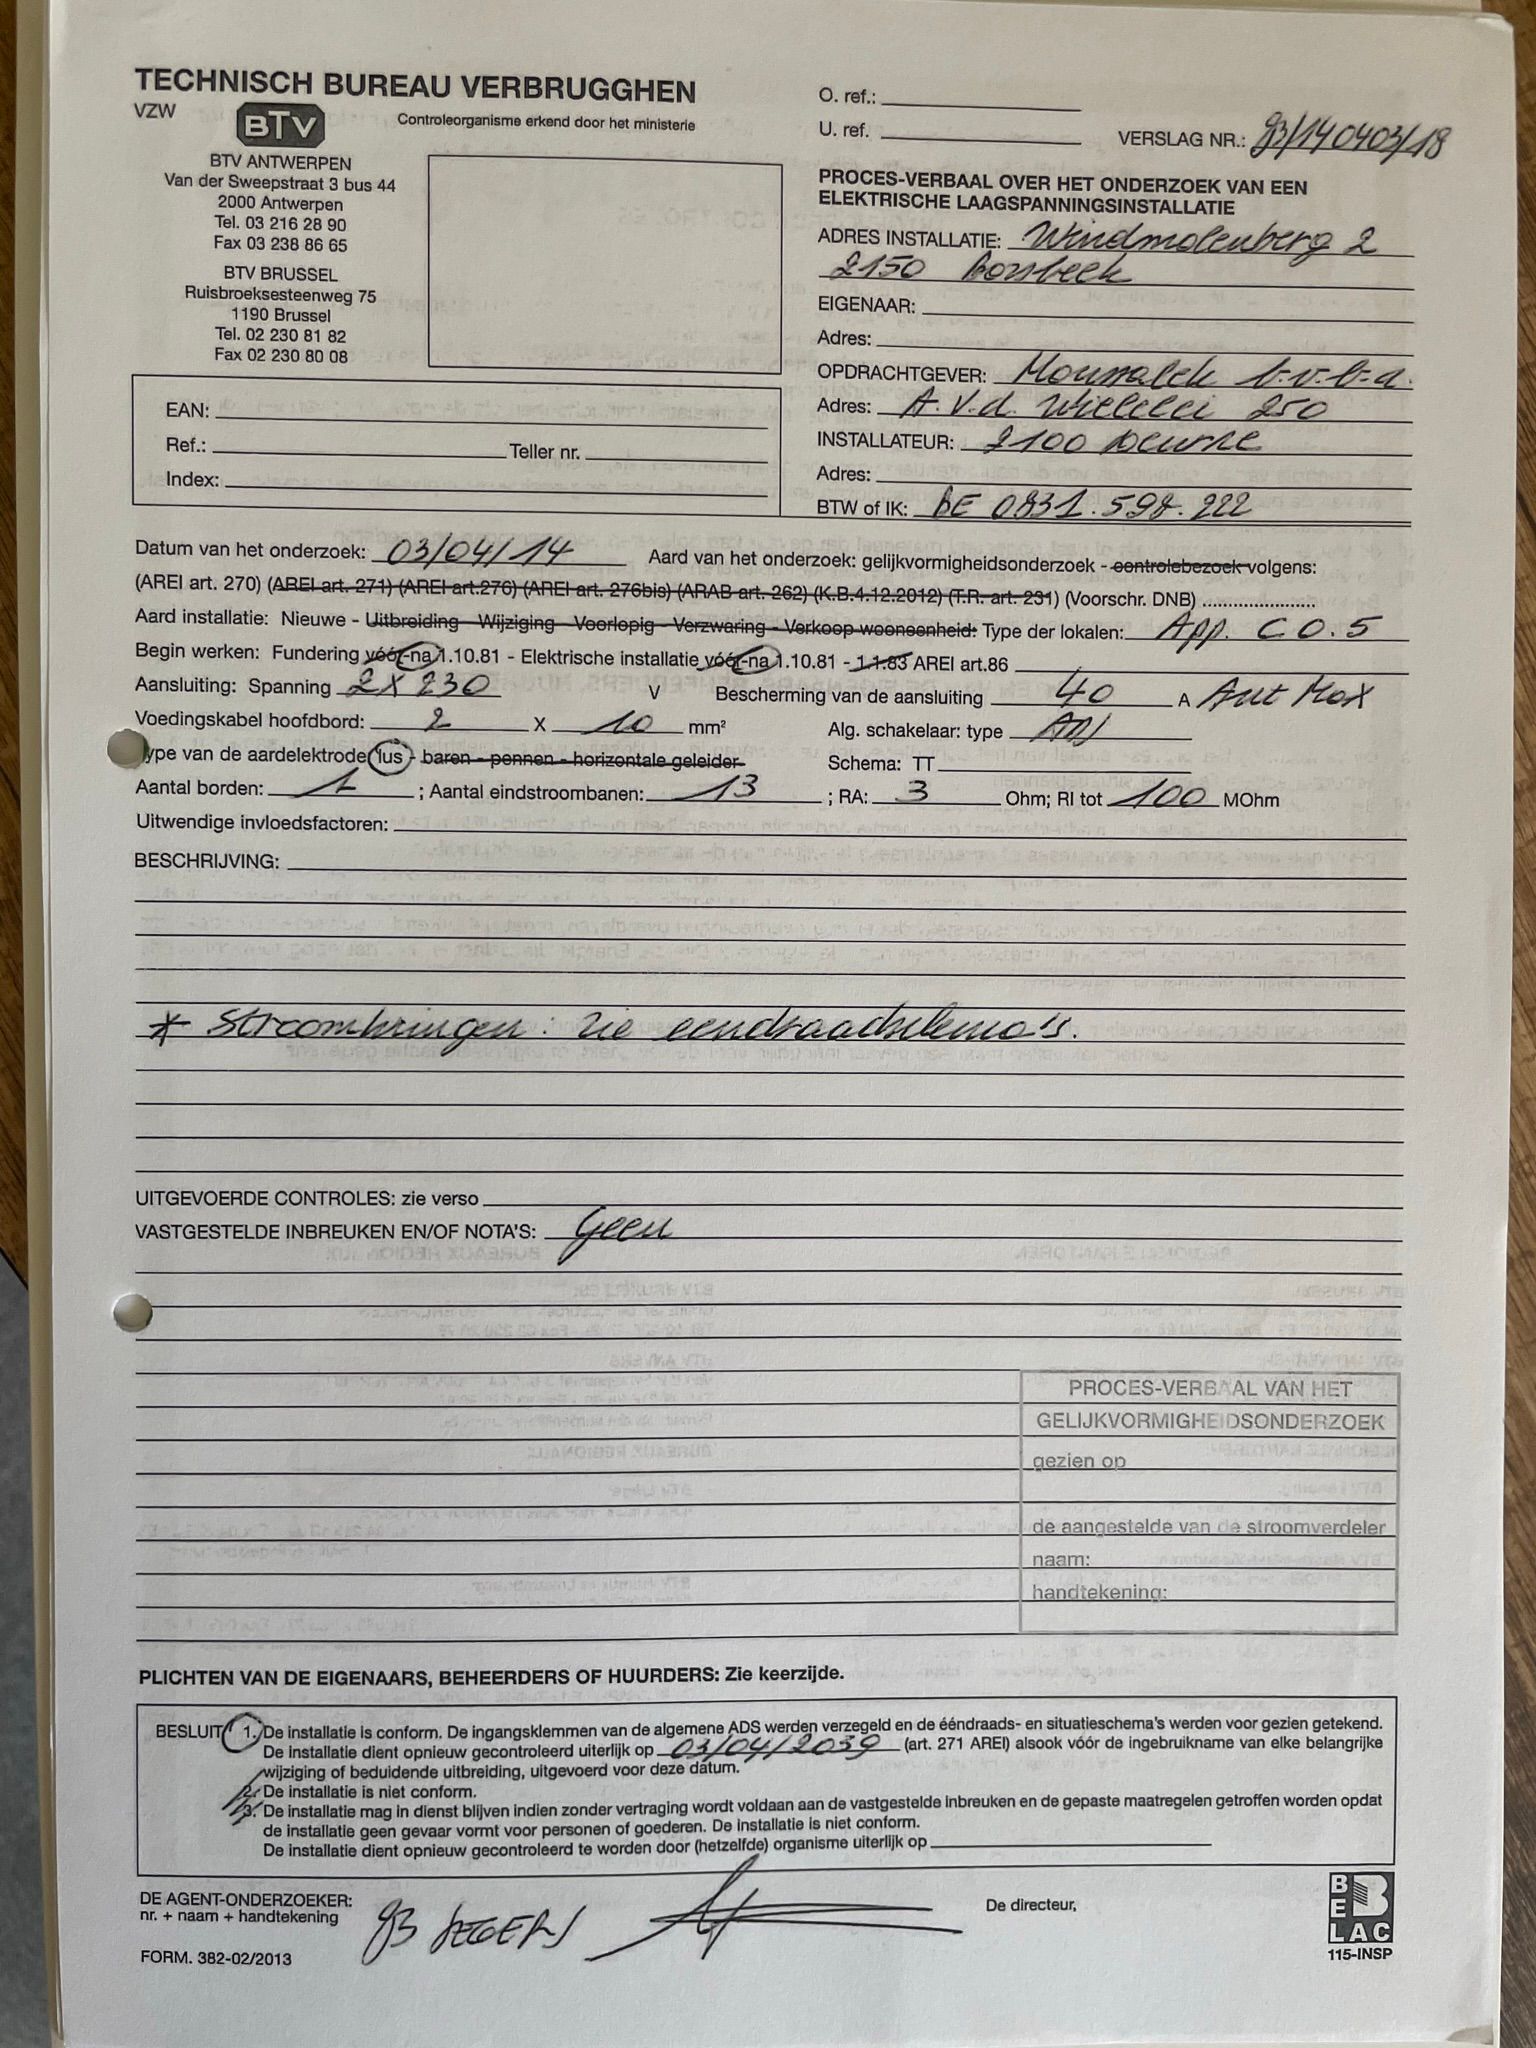 TECHNISCH BUREAU VERBRUGGHEN
VZW
BTV
Controleorganisme erkend door het ministerie
BTV ANTWERPEN
Van der Sweepstraat 3 bus 44
2000 Antwerpen
Tel. 03 216 28 90
Fax 03 238 86 65
BTV BRUSSEL
Ruisbroeksesteenweg 75
1190 Brussel
Tel. 02 230 81 82
Fax 02 230 80 08
O. ref.:
U. ref.
VERSLAG NR.: 93/140403/18
PROCES-VERBAAL OVER HET ONDERZOEK VAN EEN
ELEKTRISCHE LAAGSPANNINGSINSTALLATIE
ADRES INSTALLATIE: Windmolenberg 2
2150 Borsbeek
EIGENAAR:
Adres:
OPDRACHTGEVER: b.v.b.a.
Adres: A. V.d. Wielelei 250
INSTALLATEUR: 2100 Deurne
Adres:
BTW of IK: BE 0831.598.222
EAN:
Ref.: Teller nr.
Index:
Datum van het onderzoek: 03/04/14 Aard van het onderzoek: gelijkvormigheidsonderzoek - controlebezoek volgens:
(AREI art. 270) (AREI art. 271) (AREI art.276) (AREI art. 276bis) (ARAB art. 262) (K.B.4.12.2012) (T.R. art. 231) (Voorschr. DNB) ......................
Aard installatie: Nieuwe - Uitbreiding - Wijziging - Voorlopig - Verzwaring - Verkoop wooneenheid: Type der lokalen: App. C 0.5
Begin werken: Fundering vóór-na 1.10.81 - Elektrische installatie vóór-na 1.10.81 - 1.1.83 AREI art.86
Aansluiting: Spanning 2 x 230 V Bescherming van de aansluiting 40 A Aut Max
Voedingskabel hoofdbord: 2 X 10 mm² Alg. schakelaar: type ADS
Type van de aardelektrode lus - baren - pennen - horizontale geleider Schema: TT
Aantal borden: 1 ; Aantal eindstroombanen: 13 ; RA: 3 Ohm; RI tot 100 MOhm
Uitwendige invloedsfactoren:
BESCHRIJVING:
* Stroomkringen: zie eendraadschema's.
UITGEVOERDE CONTROLES: zie verso
VASTGESTELDE INBREUKEN EN/OF NOTA'S: Geen
PROCES-VERBAAL VAN HET
GELIJKVORMIGHEIDSONDERZOEK
gezien op
de aangestelde van de stroomverdeler
naam:
handtekening:
PLICHTEN VAN DE EIGENAARS, BEHEERDERS OF HUURDERS: Zie keerzijde.
BESLUIT 1. De installatie is conform. De ingangsklemmen van de algemene ADS werden verzegeld en de ééndraads- en situatieschema's werden voor gezien getekend.
De installatie dient opnieuw gecontroleerd uiterlijk op 03/04/2039 (art. 271 AREI) alsook vóór de ingebruikname van elke belangrijke
wijziging of beduidende uitbreiding, uitgevoerd voor deze datum.
2. De installatie is niet conform.
3. De installatie mag in dienst blijven indien zonder vertraging wordt voldaan aan de vastgestelde inbreuken en de gepaste maatregelen getroffen worden opdat
de installatie geen gevaar vormt voor personen of goederen. De installatie is niet conform.
De installatie dient opnieuw gecontroleerd te worden door (hetzelfde) organisme uiterlijk op
DE AGENT-ONDERZOEKER:
nr. + naam + handtekening
93 SEGERS
De directeur,
BELAC
115-INSP
FORM. 382-02/2013